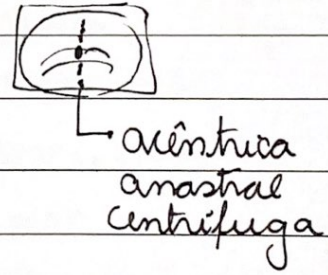 acêntrica
anastral
centrífuga